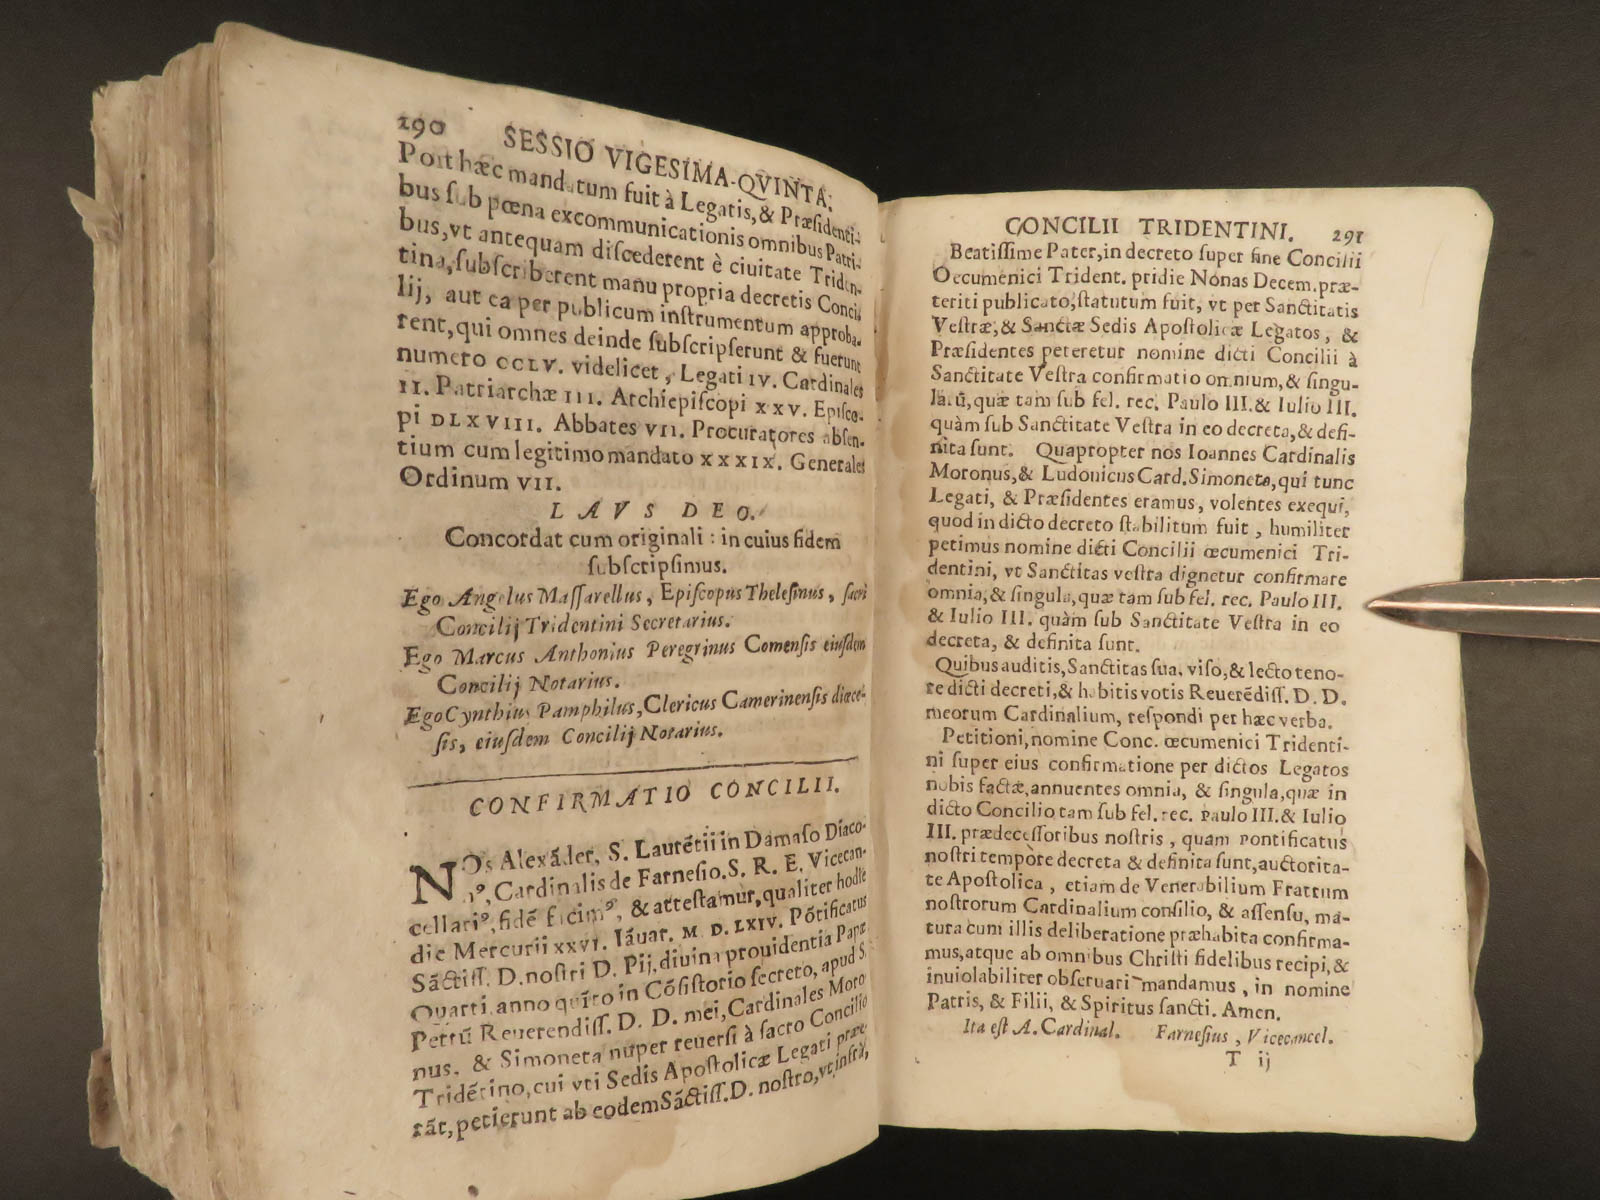 290 SESSIO VIGESIMA-QVINTA.
Post hæc mandatum fuit à Legatis, & Præsidenti-
bus sub pœna excommunicationis omnibus Patri-
bus, vt antequam discederent è ciuitate Triden-
tina, subscriberent manu propria decretis Conci-
lij, aut ea per publicum instrumentum approba-
rent, qui omnes deinde subscripserunt & fuerunt
numero CCLV. videlicet, Legati IV. Cardinales
II. Patriarchæ III. Archiepiscopi XXV. Episco-
pi DLXVIII. Abbates VII. Procuratores absen-
tium cum legitimo mandato XXXIX. Generales
Ordinum VII.
LAVS DEO.
Concordat cum originali : in cuius fidem
subscripsimus.
Ego Angelus Massarellus, Episcopus Thelesinus, sacri
Concilij Tridentini Secretarius.
Ego Marcus Anthonius Peregrinus Comensis eiusdem
Concilij Notarius.
Ego Cynthius Pamphilus, Clericus Camerinensis diœce-
sis, eiusdem Concilij Notarius.
CONFIRMATIO CONCILII.
NOs Alexãder, S. Laurẽtii in Damaso Diaco-
nꝰ, Cardinalis de Farnesio. S. R. E. Vicecan-
cellariꝰ, fidẽ facimꝰ, & attestamur, qualiter hodie
die Mercurii XXVI. Iãuar. M. D. LXIV. Põtificatus
Sãctiss. D. nostri D. Pij, diuina prouidentia Papæ
Quarti, anno quĩto in Cõsistorio secreto, apud S.
Petrũ Reuerendiss. D. D. mei, Cardinales Moro
nus. & Simoneta nuper reuersi à sacro Concilio
Tridẽtino, cui vti Sedis Apostolicæ Legati præe-
rãt, petierunt ab eodem Sãctiss. D. nostro, vt infrà,
CONCILII TRIDENTINI. 291
Beatissime Pater, in decreto super fine Concilii
Oecumenici Trident. pridie Nonas Decem. præ-
teriti publicato, statutum fuit, vt per Sanctitatis
Vestræ, & Sanctæ Sedis Apostolicæ Legatos, &
Præsidentes peteretur nomine dicti Concilii à
Sanctitate Vestra confirmatio omnium, & singu-
larũ, quæ tam sub fel. rec. Paulo III. & Iulio III.
quàm sub Sanctitate Vestra in eo decreta, & defi-
nita sunt. Quapropter nos Ioannes Cardinalis
Moronus, & Ludonicus Card. Simoneta, qui tunc
Legati, & Præsidentes eramus, volentes exequi,
quod in dicto decreto stabilitum fuit, humiliter
petimus nomine dicti Concilii œcumenici Tri-
dentini, vt Sanctitas vestra dignetur confirmare
omnia, & singula, quæ tam sub fel. rec. Paulo III.
& Iulio III. quàm sub Sanctitate Vestra in eo
decreta, & definita sunt.
Quibus auditis, Sanctitas sua, viso, & lecto teno-
re dicti decreti, & habitis votis Reuerẽdiss. D. D.
meorum Cardinalium, respondi per hæc verba.
Petitioni, nomine Conc. œcumenici Tridenti-
ni super eius confirmatione per dictos Legatos
nobis factæ, annuentes omnia, & singula, quæ in
dicto Concilio tam sub fel. rec. Paulo III. & Iulio
III. prædecessoribus nostris, quam pontificatus
nostri tempòre decreta & definita sunt, auctorita-
te Apostolica, etiam de Venerabilium Fratrum
nostrorum Cardinalium consilio, & assensu, ma-
tura cum illis deliberatione præhabita confirma-
mus, atque ab omnibus Christi fidelibus recipi, &
inuiolabiliter obseruari mandamus, in nomine
Patris, & Filii, & Spiritus sancti. Amen.
Ita est A. Cardinal. Farnesius, Vicecancel.
T ij